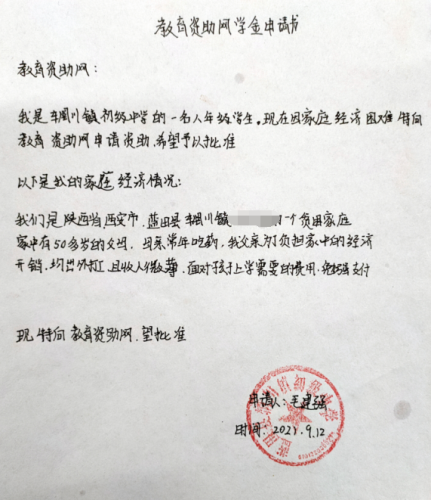 教育资助网学金申请书
教育资助网：
我是辋川镇初级中学的一名八年级学生。现在因家庭经济困难特向
教育资助网申请资助，希望予以批准
以下是我的家庭经济情况：
我们是陕西省西安市，蓝田县辋川镇 一个贫困家庭
家中有50多岁的父母，母亲常年吃药，我父亲为负担家中的经济
开销，均外出打工，且收入微薄，面对孩子上学需要的费用，勉强支付
现特向教育资助网，望批准
申请人：毛建强
时间：2021.9.12
镇初级中学